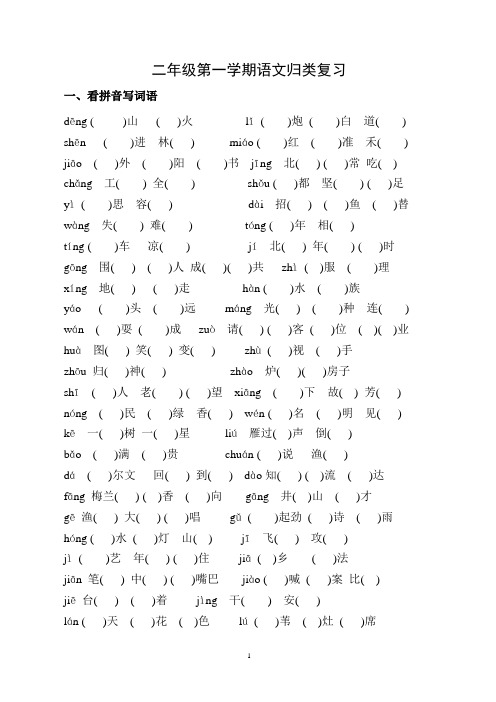 二年级第一学期语文归类复习
一、看拼音写词语
dēng ( )山 ( )火 lǐ ( )炮 ( )白 道( )
shēn ( )进 林( ) miáo ( )红 ( )准 禾( )
jiāo ( )外 ( )阳 ( )书 jīng 北( ) ( )常 吃( )
chǎng 工( ) 全( ) shǒu ( )都 坚( ) ( )足
yì ( )思 容( ) dài 招( ) ( )鱼 ( )替
wàng 失( ) 难( ) tóng ( )年 相( )
tíng ( )车 凉( ) jí 北( ) 年( ) ( )时
gōng 围( ) ( )人 成( )( )共 zhì ( )服 ( )理
xíng 地( ) ( )走 hàn ( )水 ( )族
yáo ( )头 ( )远 máng 光( ) ( )种 连( )
wán ( )耍 ( )成 zuò 请( ) ( )客 ( )位 ( )( )业
huà 图( ) 笑( ) 变( ) zhù ( )视 ( )手
zhōu 归( )神( ) zhào 炉( )( )房子
shī ( )人 老( ) ( )望 xiāng ( )下 故( ) 芳( )
nóng ( )民 ( )绿 香( ) wén ( )名 ( )明 见( )
kē 一( )树 一( )星 liú 雁过( )声 倒( )
bǎo ( )满 ( )贵 chuán ( )说 渔( )
dá ( )尔文 回( ) 到( ) dào 知( ) ( )流 ( )达
fāng 梅兰( ) ( )香 ( )向 gāng 井( )山 ( )才
gē 渔( ) 大( ) ( )唱 gǔ ( )起劲 ( )诗 ( )雨
hóng ( )水 ( )灯 山( ) jī 飞( ) 攻( )
jì ( )艺 年( ) ( )住 jiā ( )乡 ( )法
jiān 笔( ) 中( ) ( )嘴巴 jiào ( )喊 ( )案 比( )
jiē 台( ) ( )着 jìng 干( ) 安( )
lán ( )天 ( )花 ( )色 lú ( )苇 ( )灶 ( )席
1